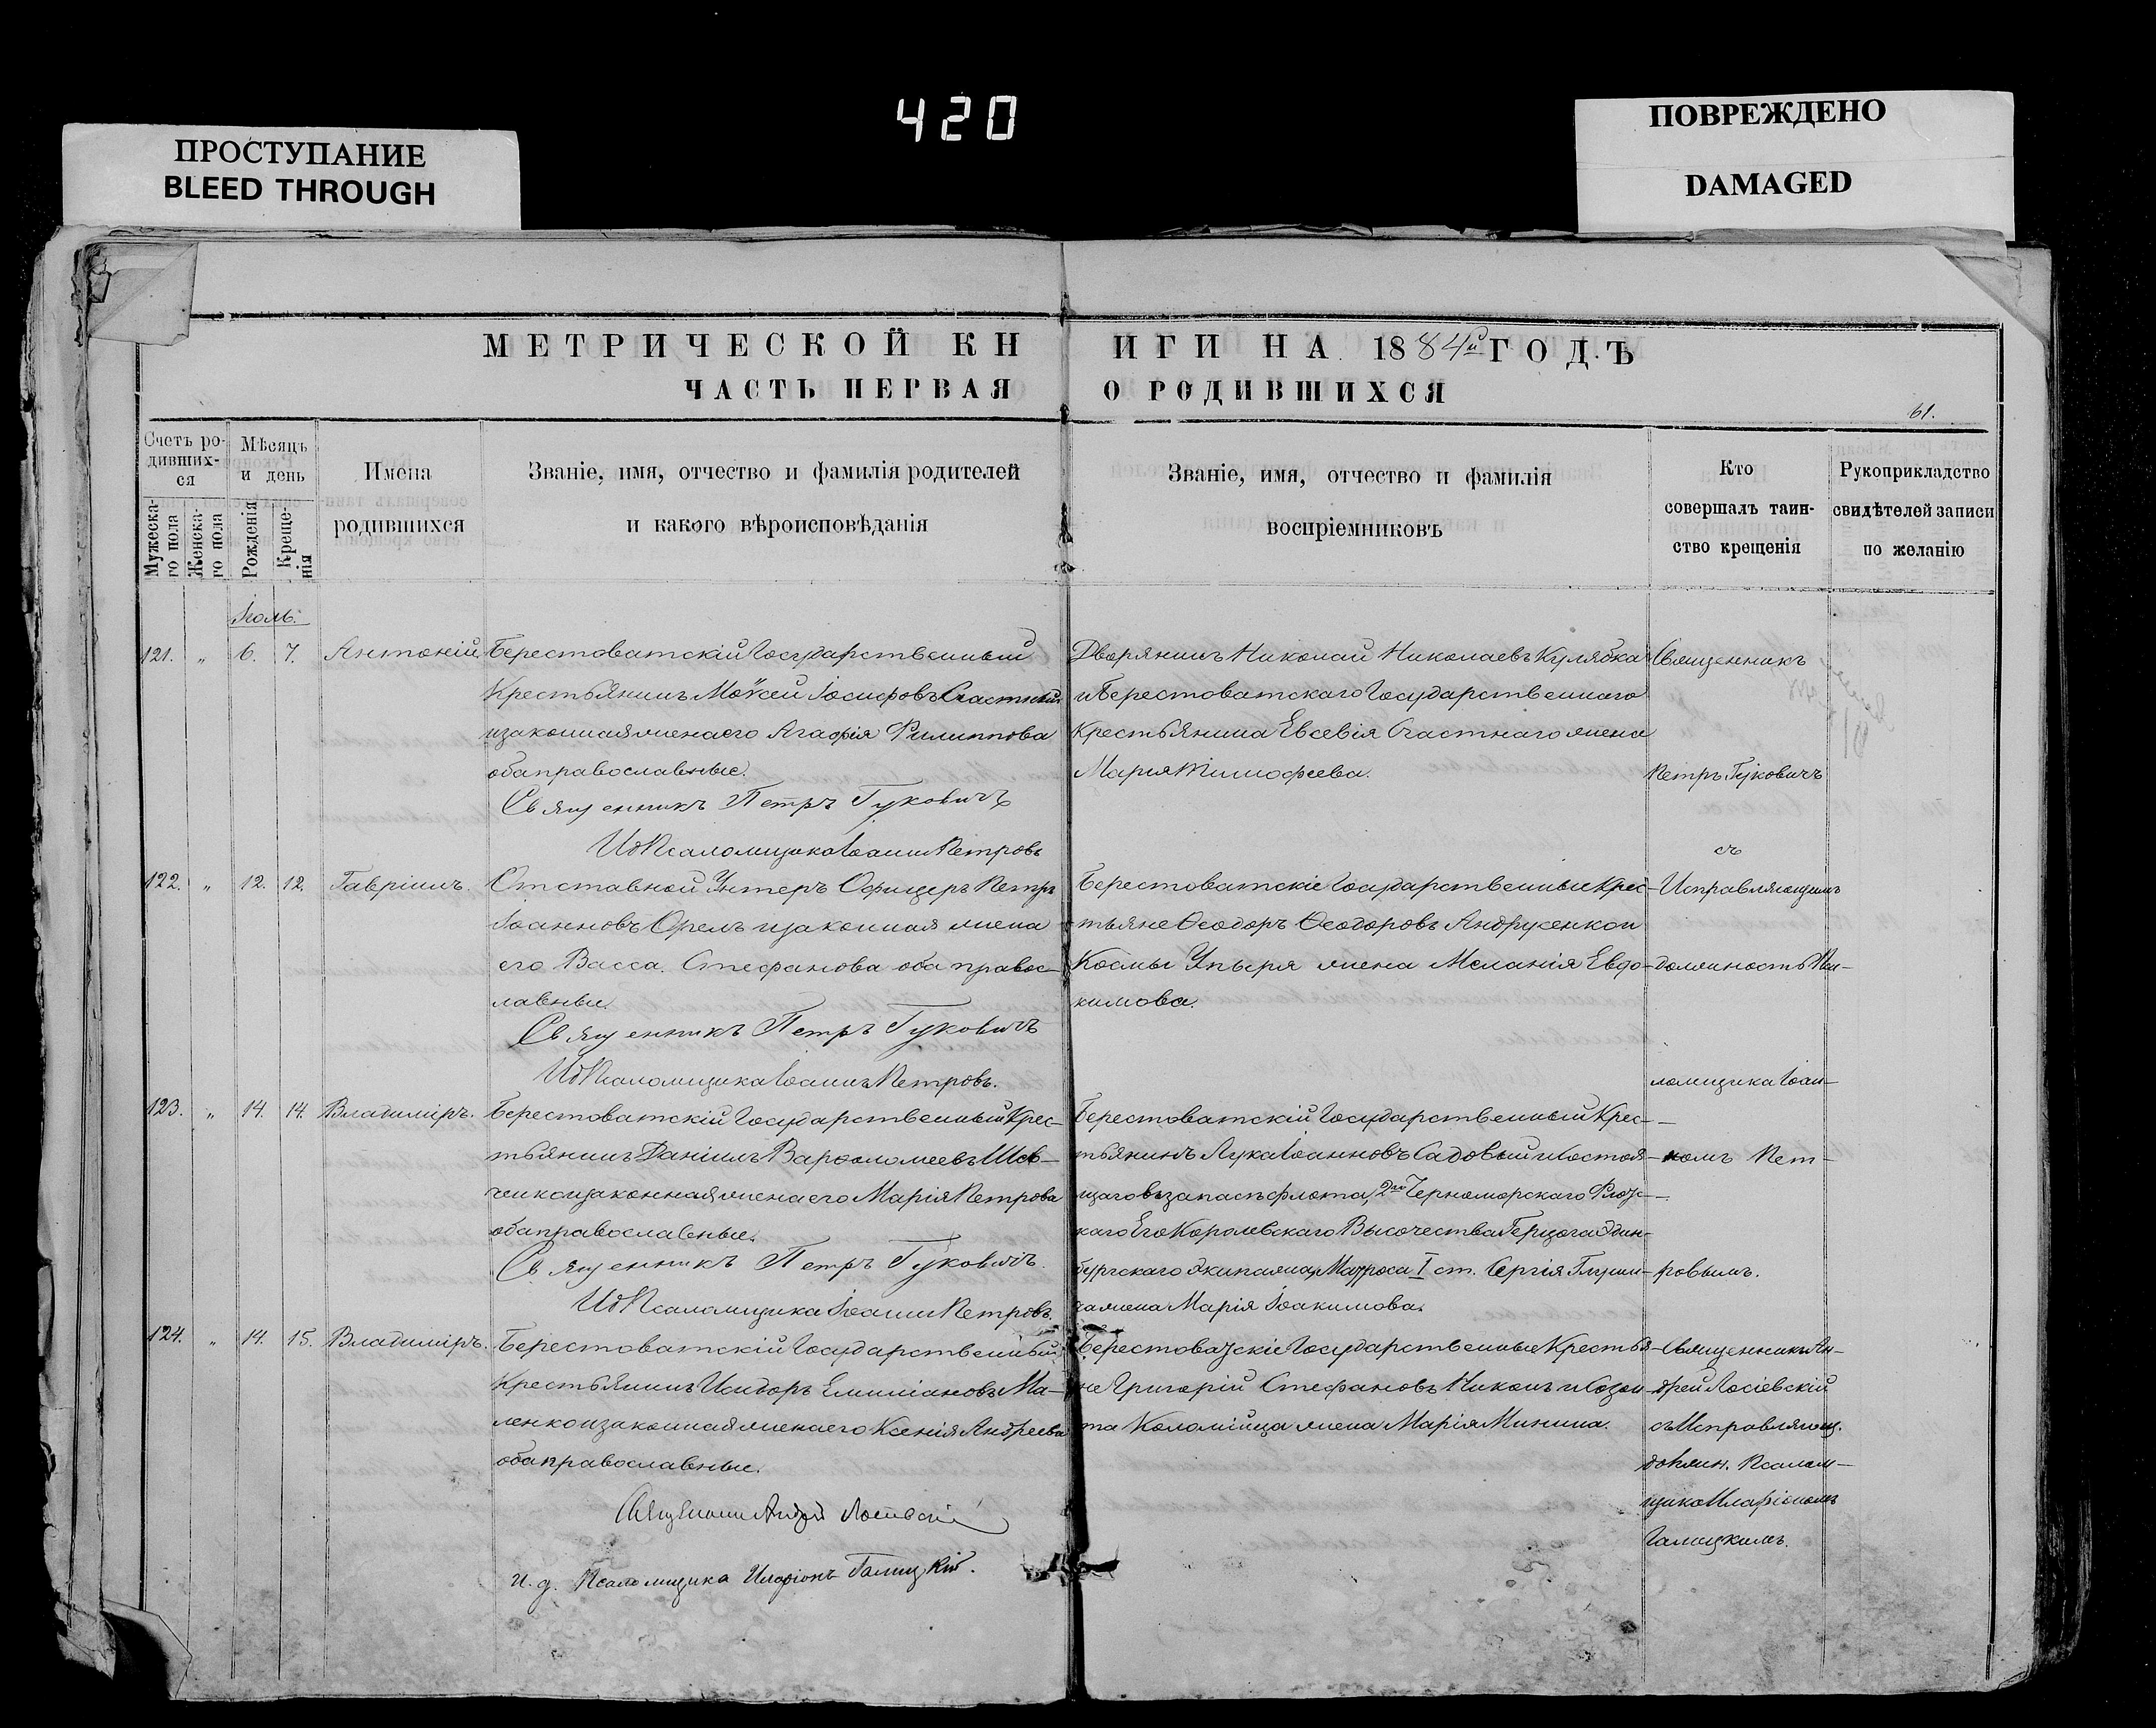 420
ПРОСТУПАНИЕ
BLEED THROUGH
ПОВРЕЖДЕНО
DAMAGED
МЕТРИЧЕСКОЙ КНИГИ НА 1884й ГОДЪ
ЧАСТЬ ПЕРВАЯ О РОДИВШИХСЯ
61.
Счетъ ро-
дивших-
ся
Мужеска-
го пола
Женска-
го пола
Мѣсяцъ
и день
Рожденія
Креще-
нія
Имена
родившихся
Званіе, имя, отчество и фамилія родителей
и какого вѣроисповѣданія
Званіе, имя, отчество и фамилія
воспріемниковъ
Кто
совершалъ таин-
ство крещенія
Рукоприкладство
свидѣтелей записи
по желанію
Іюль.
121. " 6. 7. Антоній.
Берестоватскій Государственный
Крестьянинъ Моѵсей Іосифовъ Счастный
и законная жена его Агафія Филиппова
оба православные.
Священникъ Петръ Гуковичъ
Ид Псаломщика Іоаннъ Петровъ
Дворянинъ Николай Николаевъ Кулябка
и Берестоватскаго Государственнаго
Крестьянина Евсевія Счастнаго жена
Марія Тимофеева.
Священникъ
Петръ Гуковичъ
съ
122. " 12. 12. Гавріилъ.
Отставной Унтеръ Офицеръ Петръ
Іоанновъ Орелъ и законная жена
его Васса Стефанова оба правос-
лавные.
Священникъ Петръ Гуковичъ
Ид Псаломщика Іоаннъ Петровъ.
Берестоватскіе Государственные Крес-
тьяне Ѳеодоръ Ѳеодоровъ Андрусенко и
Космы Упыря жена Меланія Евдо-
кимова.
Исправляющимъ
должность Пса-
ломщика Іоан-
123. " 14. 14. Владиміръ.
Берестоватскій Государственный Крес-
тьянинъ Даніилъ Варѳоломеевъ Шев-
ченко и законная жена его Марія Петрова
оба православные.
Священникъ Петръ Гуковичъ.
Ид Псаломщика Іоаннъ Петровъ.
Берестоватскій Государственный Крес-
тьянинъ Лука Іоанновъ Садовый и состоя-
щаго въ запасѣ флота, 2го Черноморскаго Флотс-
каго Его Королевскаго Высочества Герцога Эдин-
бургскаго экипажа, Матроса I ст. Сергія
жена Марія Іоакимова.
номъ Пет-
ровымъ.
124. " 14. 15. Владиміръ.
Берестоватскій Государственный
Крестьянинъ Исидоръ Емиліановъ Ма-
ленко и законная жена его Ксенія Андреева
оба православные.
Священникъ Андрей Лосіевскій
и. д. Псаломщика Иларіонъ Галицкій.
Берестоватскіе Государственные Крестья-
не Григорій Стефановъ Никонъ и Созон-
та Коломійца жена Марія Минина.
Священникъ Ан-
дрей Лосіевскій
съ Исправляющ.
должн. Псалом-
щика Иларіономъ
Галицкимъ.